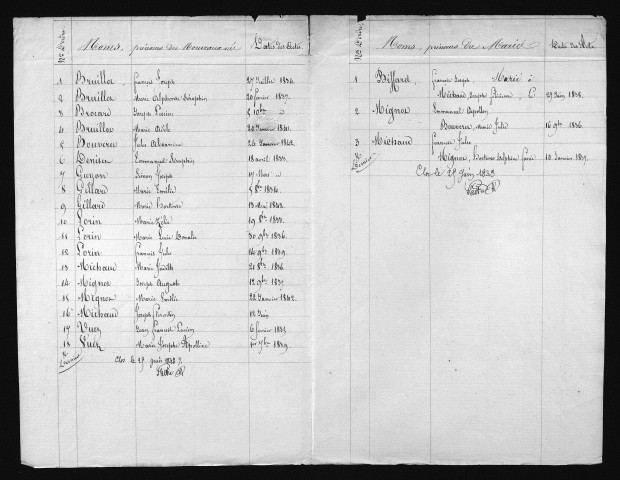 Nos d'ordre Noms, prénoms des Nouveaux nés Dates des Actes
1 Bruillot François Joseph 27 Juillet 1836.
2 Bruillot Marie Alphonse Séraphin 20 février 1839.
3 Brocard Joseph Lucien 8 10bre
4 Bruillot Marie Adèle 20 Janvier 1841.
5 Bouveru Jules Alexandre 26 Janvier 1842.
6 Denisen Emmanuel Séraphin 18 avril 1833.
7 Guyon Simon Joseph 17 Mars
8 Gillard Marie Emélie 5 8bre 1834.
9 Gillard Marie Hortense 13 Mai 1842.
10 Lorin Marie Zélie 19 8bre 1833.
11 Lorin Marie Lucie 30 9bre 1836.
12 Lorin François Jules 16 9bre 1839.
13 Michaud Marie Judith 21 8bre 1836.
14 Mignot Joseph Auguste 12 9bre 1835.
15 Mignot Marie Emélie 22 Janvier 1842.
16 Michaud Joseph 12 Juin
17 Vuez Jean François Lucien 6 février 1835.
18 Vuez Marie Josephe Apolline 1er 7bre 1839.
& dernier
Clos le 29 juin 1843
Nos d'ordre Noms, prénoms des Mariés Dates des Actes
1 Biffard François Joseph Marié à
29 Juin 1838.
2 Mignot Emmanuel Apollon
Bouveru Marie Julie 16 9bre 1836.
3 Michaud François Jules
& dernier Mignot, Hortense 10 Janvier 1839.
Clos le 29 Juin 1843